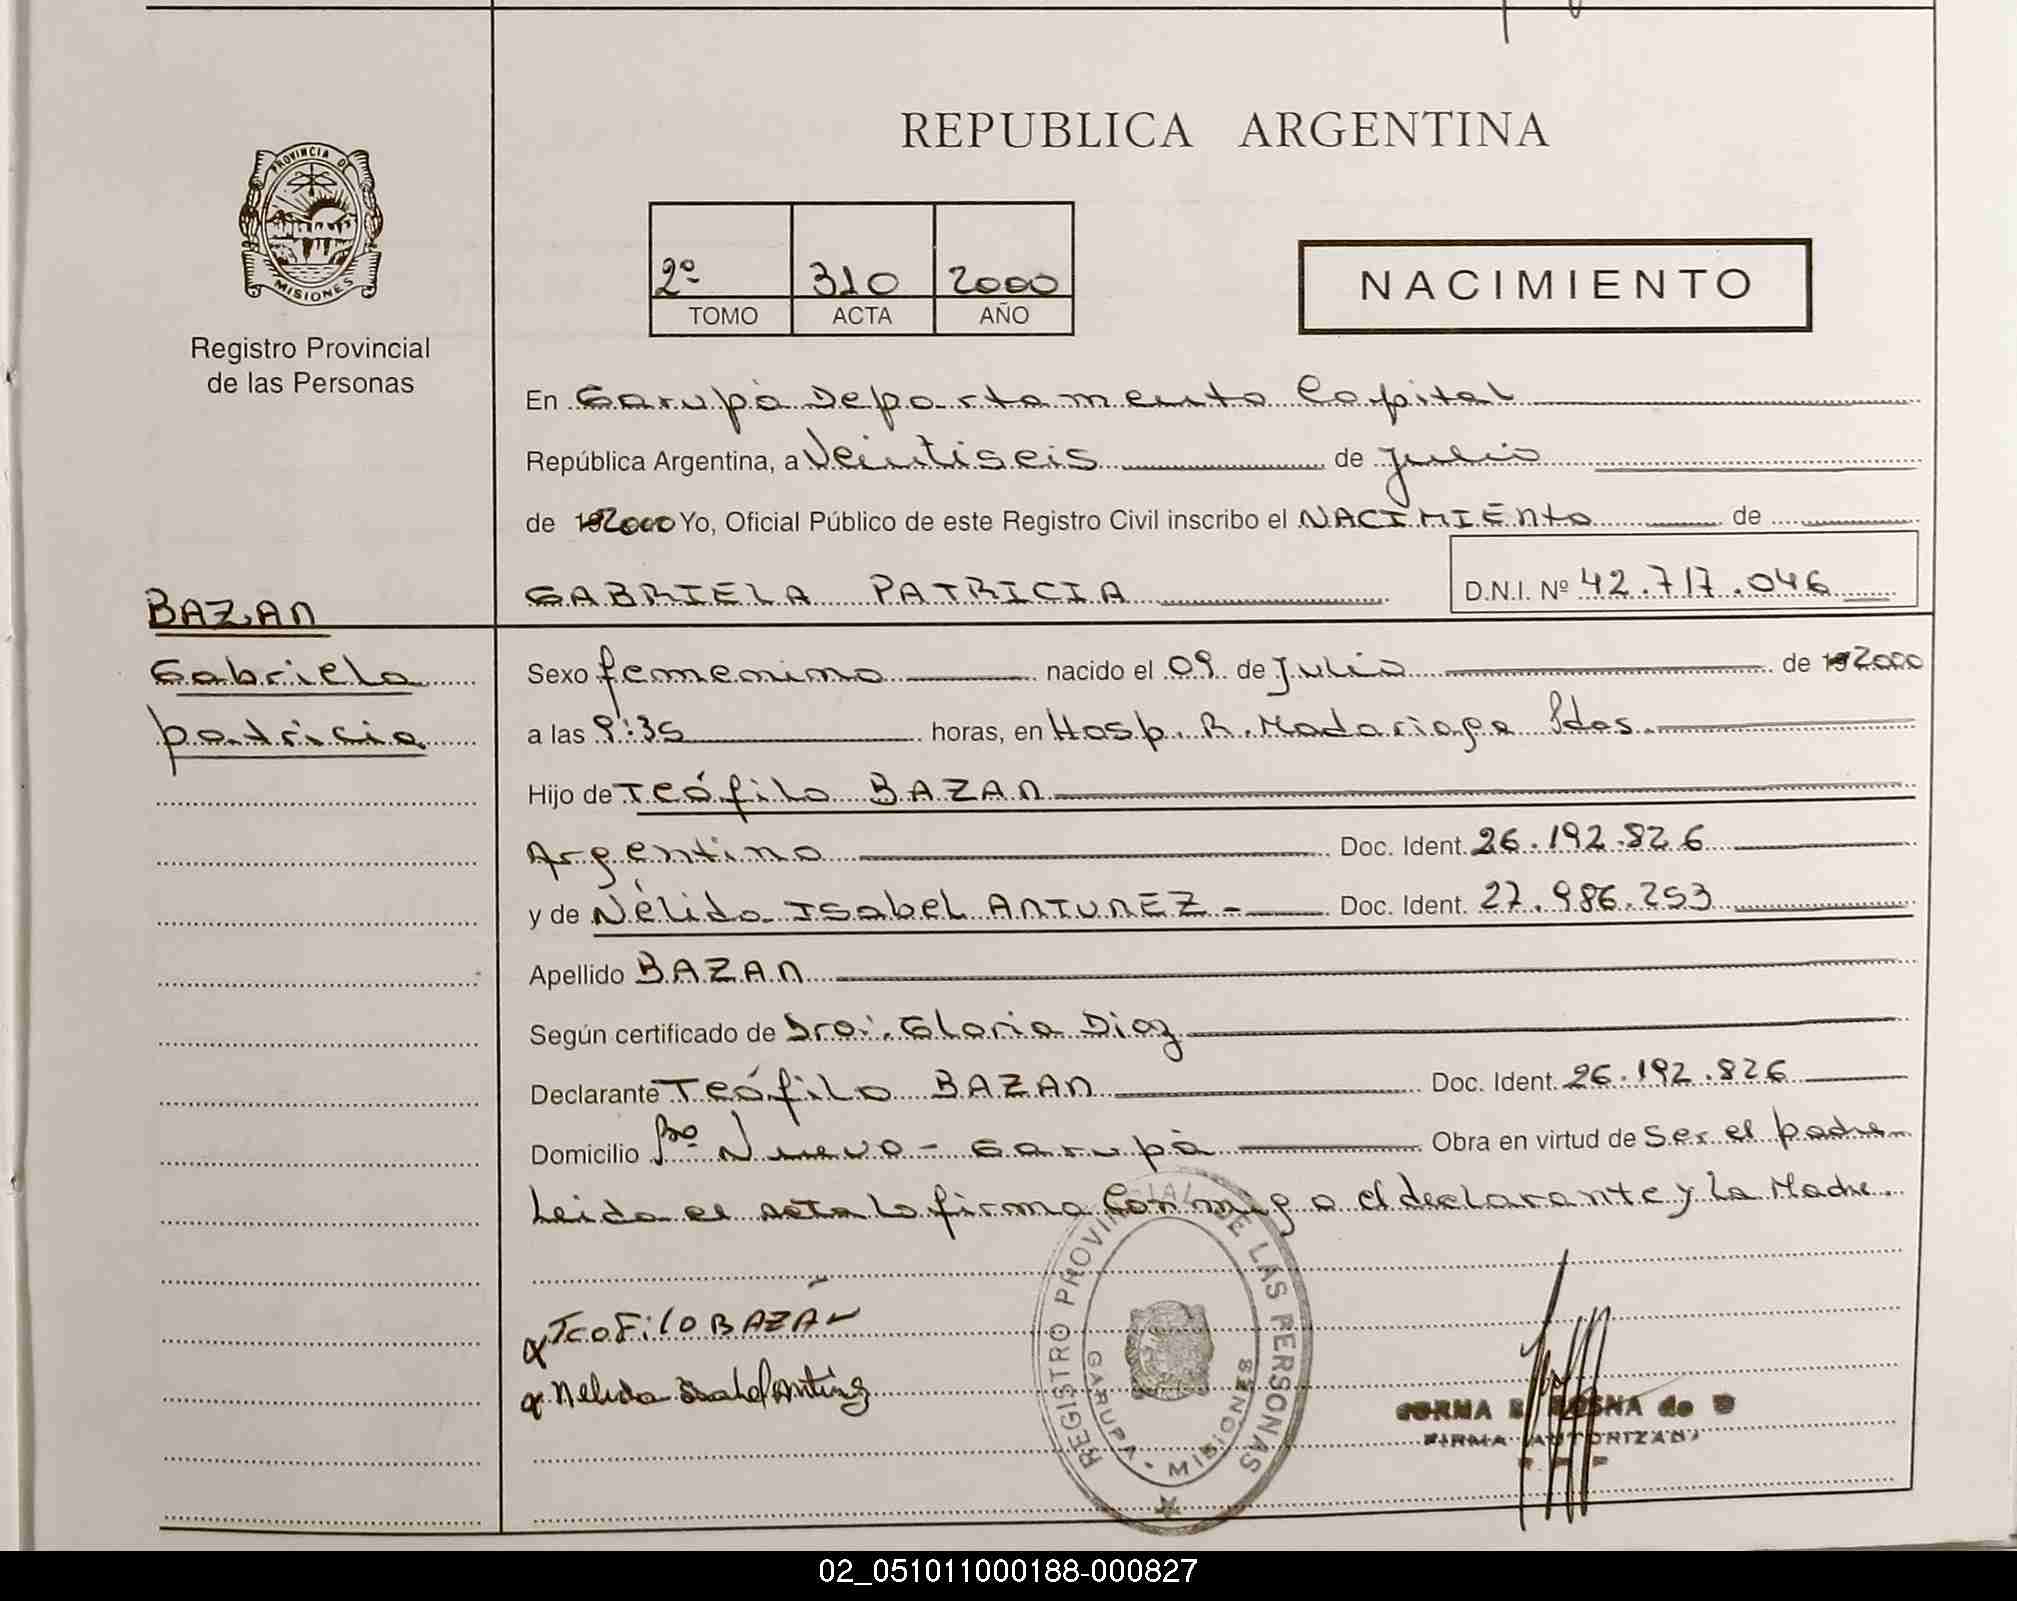 REPUBLICA ARGENTINA
PROVINCIA DE
MISIONES
Registro Provincial
de las Personas
2º 310 2000
TOMO ACTA AÑO
NACIMIENTO
En Garupà Departamento Capital
República Argentina, a Veintiseis de Julio
de 192000 Yo, Oficial Público de este Registro Civil inscribo el NACIMIENto de
GABRIELA PATRICIA D.N.I. Nº 42.717.046
BAZAN
Gabriela
patricia
Sexo femenino nacido el 09 de Julio de 192000
a las 9:35 horas, en Hosp. R. Madariaga Pdas.
Hijo de Teófilo BAZAN
Argentino Doc. Ident. 26.192.826
y de Nélida Isabel ANTUNEZ - Doc. Ident. 27.986.253
Apellido BAZAN
Según certificado de Dra. Gloria Diaz
Declarante Teófilo BAZAN Doc. Ident. 26.192.826
Domicilio Bº Nuevo - Garupà Obra en virtud de Ser el padre
Leida el acta lo firma Conmigo el declarante y La Madre.
TeoFilo BAZÁN
Nelida Isabel Antunez
REGISTRO PROVINCIAL DE LAS PERSONAS
GARUPA - MISIONES
FIRMA AUTORIZADA
02_051011000188-000827